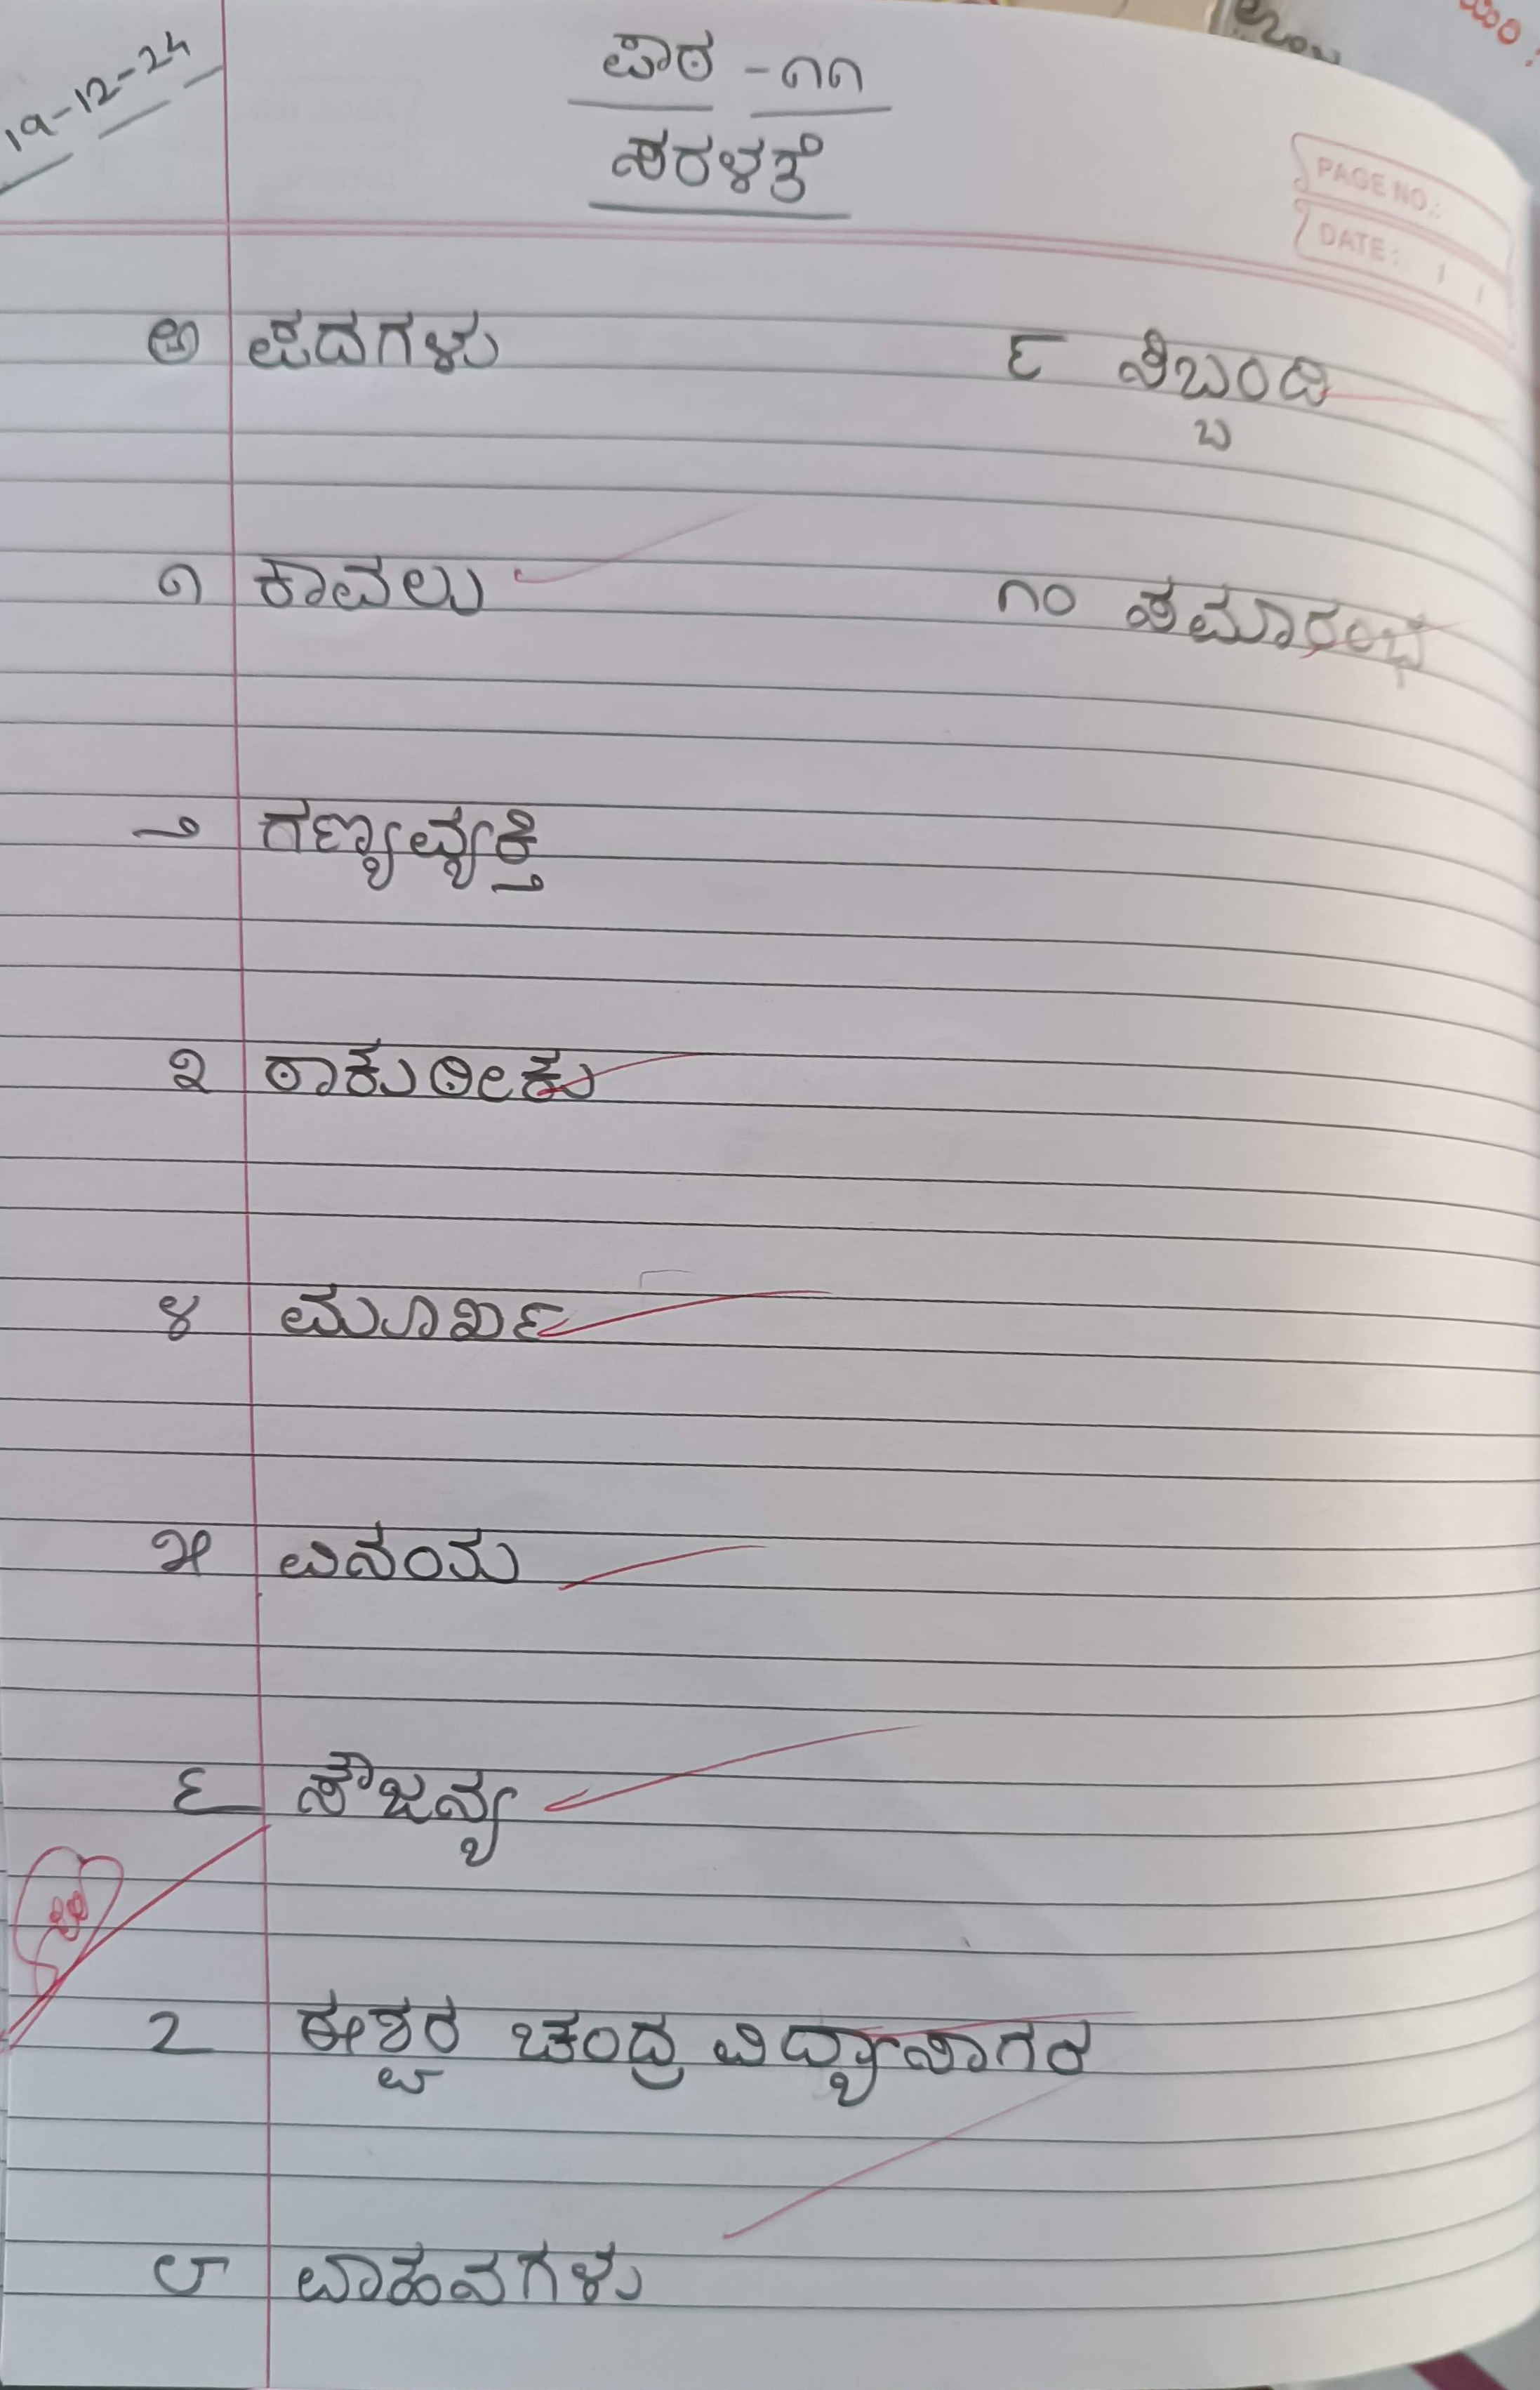 19-12-24
ಪಾಠ - ೧೧
ಸರಳತೆ
PAGE NO.:
DATE: / /
ಅ ಪದಗಳು
೧ ಕಾವಲು
೨ ಗಣ್ಯವ್ಯಕ್ತಿ
೩ ಠಾಕುಠೀಕು
೪ ಮೂರ್ಖ
೫ ವಿನಂತಿ
೬ ಸೌಜನ್ಯ
೭ ಈಶ್ವರ ಚಂದ್ರ ವಿದ್ಯಾಸಾಗರ
೮ ವಾಹನಗಳು
೯ ಸಿಬ್ಬಂದಿ
೧೦ ಸಮಾರಂಭ